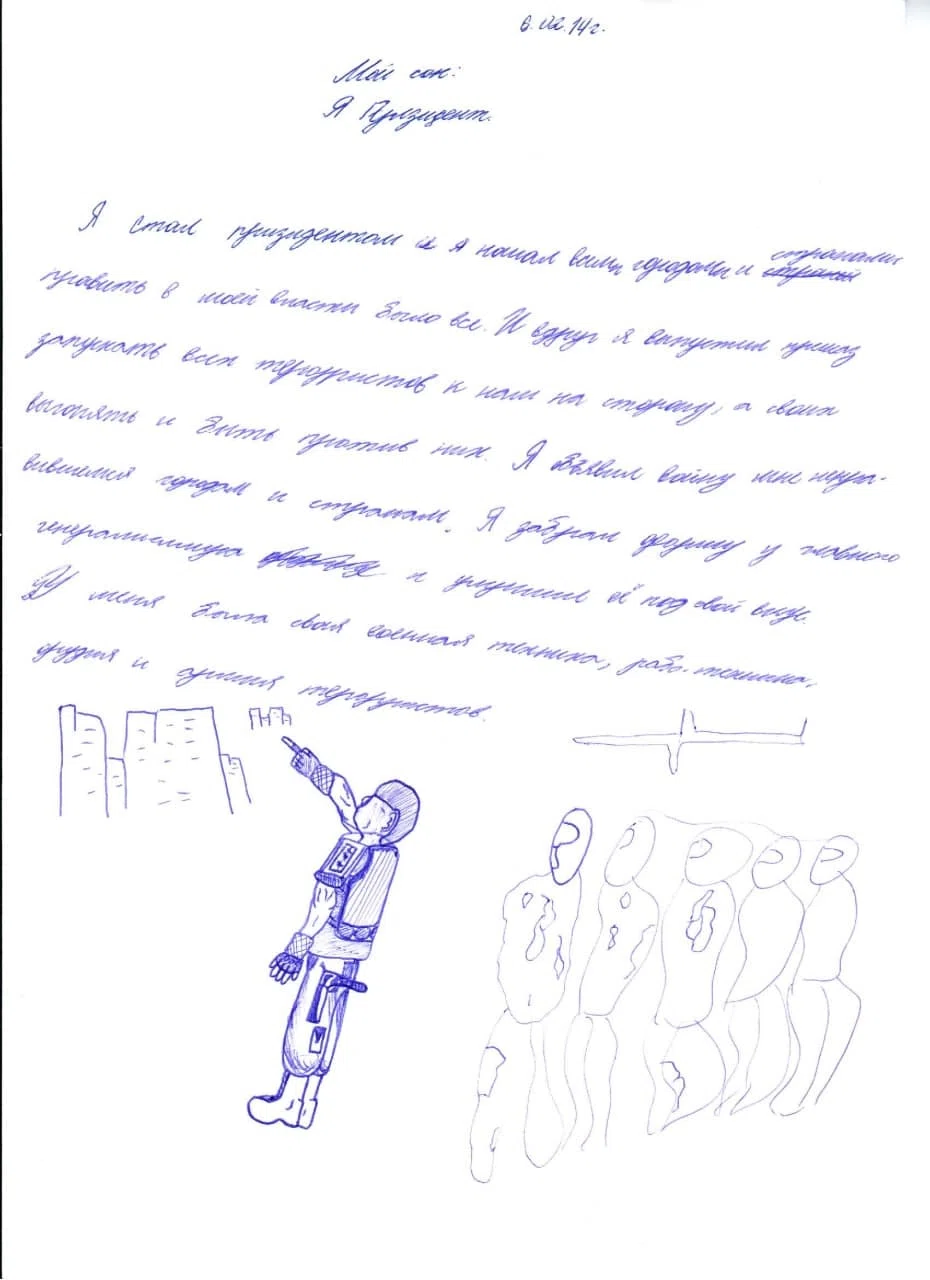 6.02.14г.
Мой сон:
Я Призидент.
Я стал призидентом и я начал всеми городами и странами
править в моей власти было все. И вдруг я выпустил приказ
запускать всех терористов к нам на сторону, а своих
выгонять и быть против них. Я объявил войну мне ненра-
вившемся городам и странам. Я забрал форму у главного
генералиссимуса и улучшил её под свой вкус.
У меня была своя военная техника, робо-техника,
армия терористов.